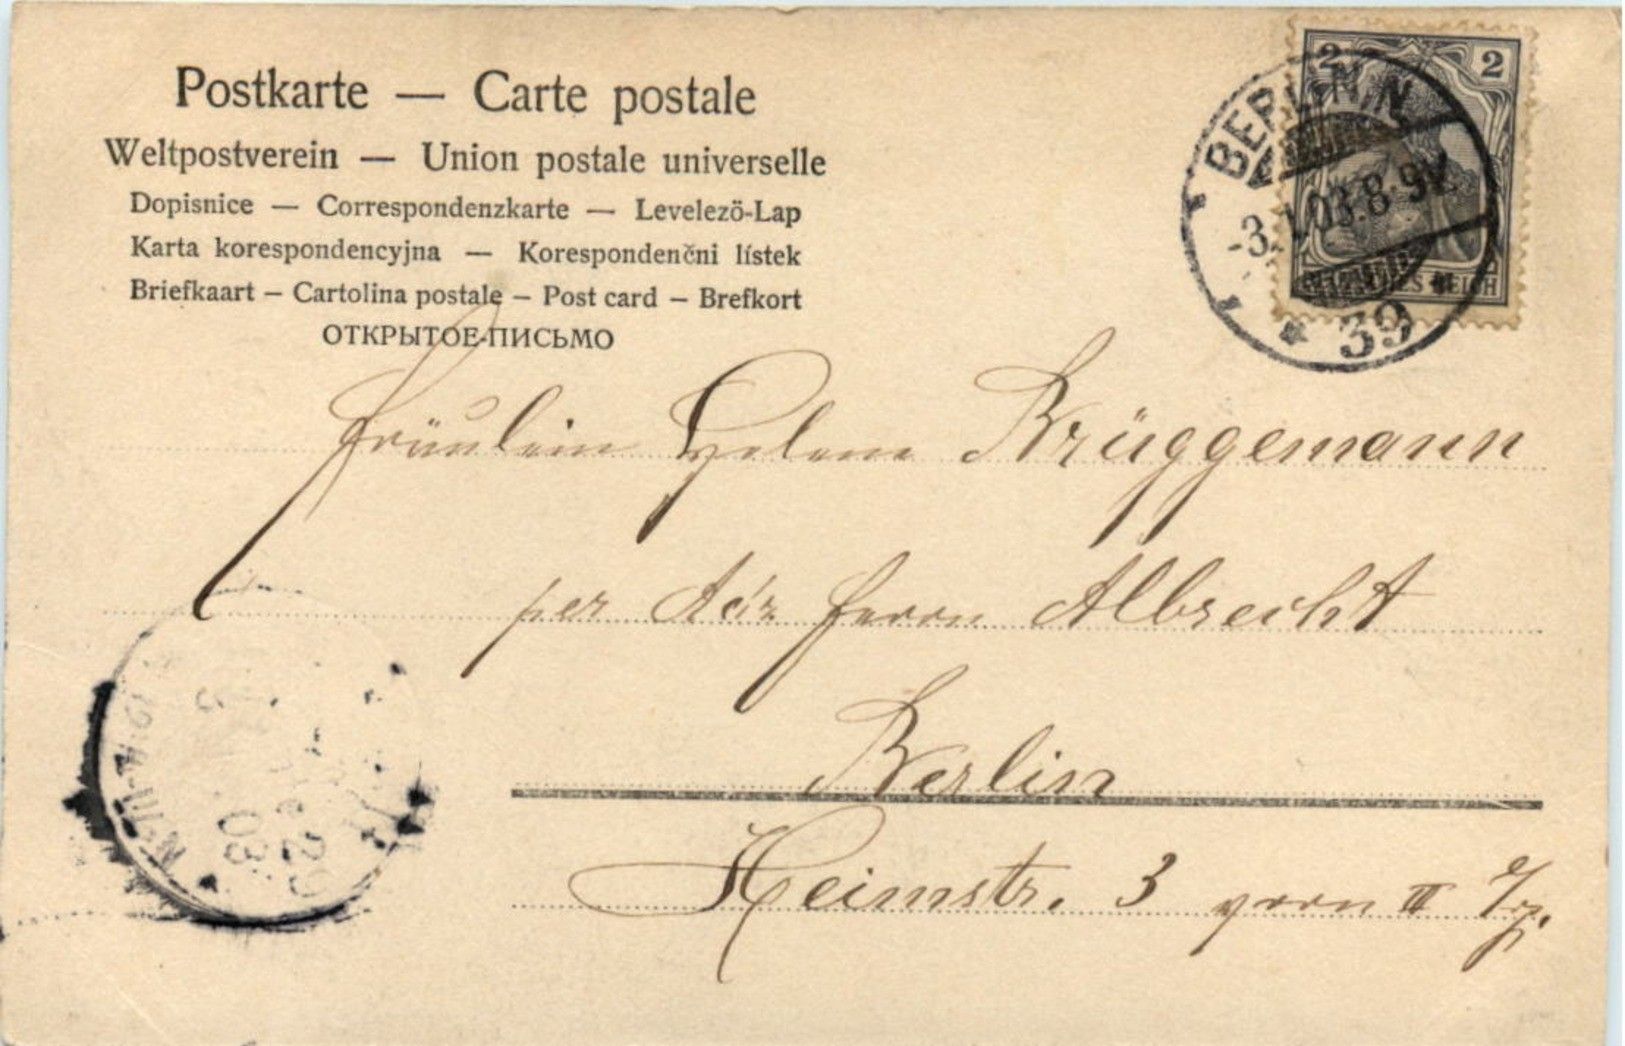 Postkarte — Carte postale
Weltpostverein — Union postale universelle
Dopisnice — Correspondenzkarte — Levelezö-Lap
Karta korespondencyjna — Korespondenčni lístek
Briefkaart – Cartolina postale – Post card – Brefkort
ОТКРЫТОЕ-ПИСЬМО
2 2
BERLIN, N.
-3.1.03.8-9V.
DEUTSCHES REICH
* 39
Fräulein Helene Brüggemann
per Adr Herrn Albrecht
Berlin
Heimstr. 3 vorn III
03